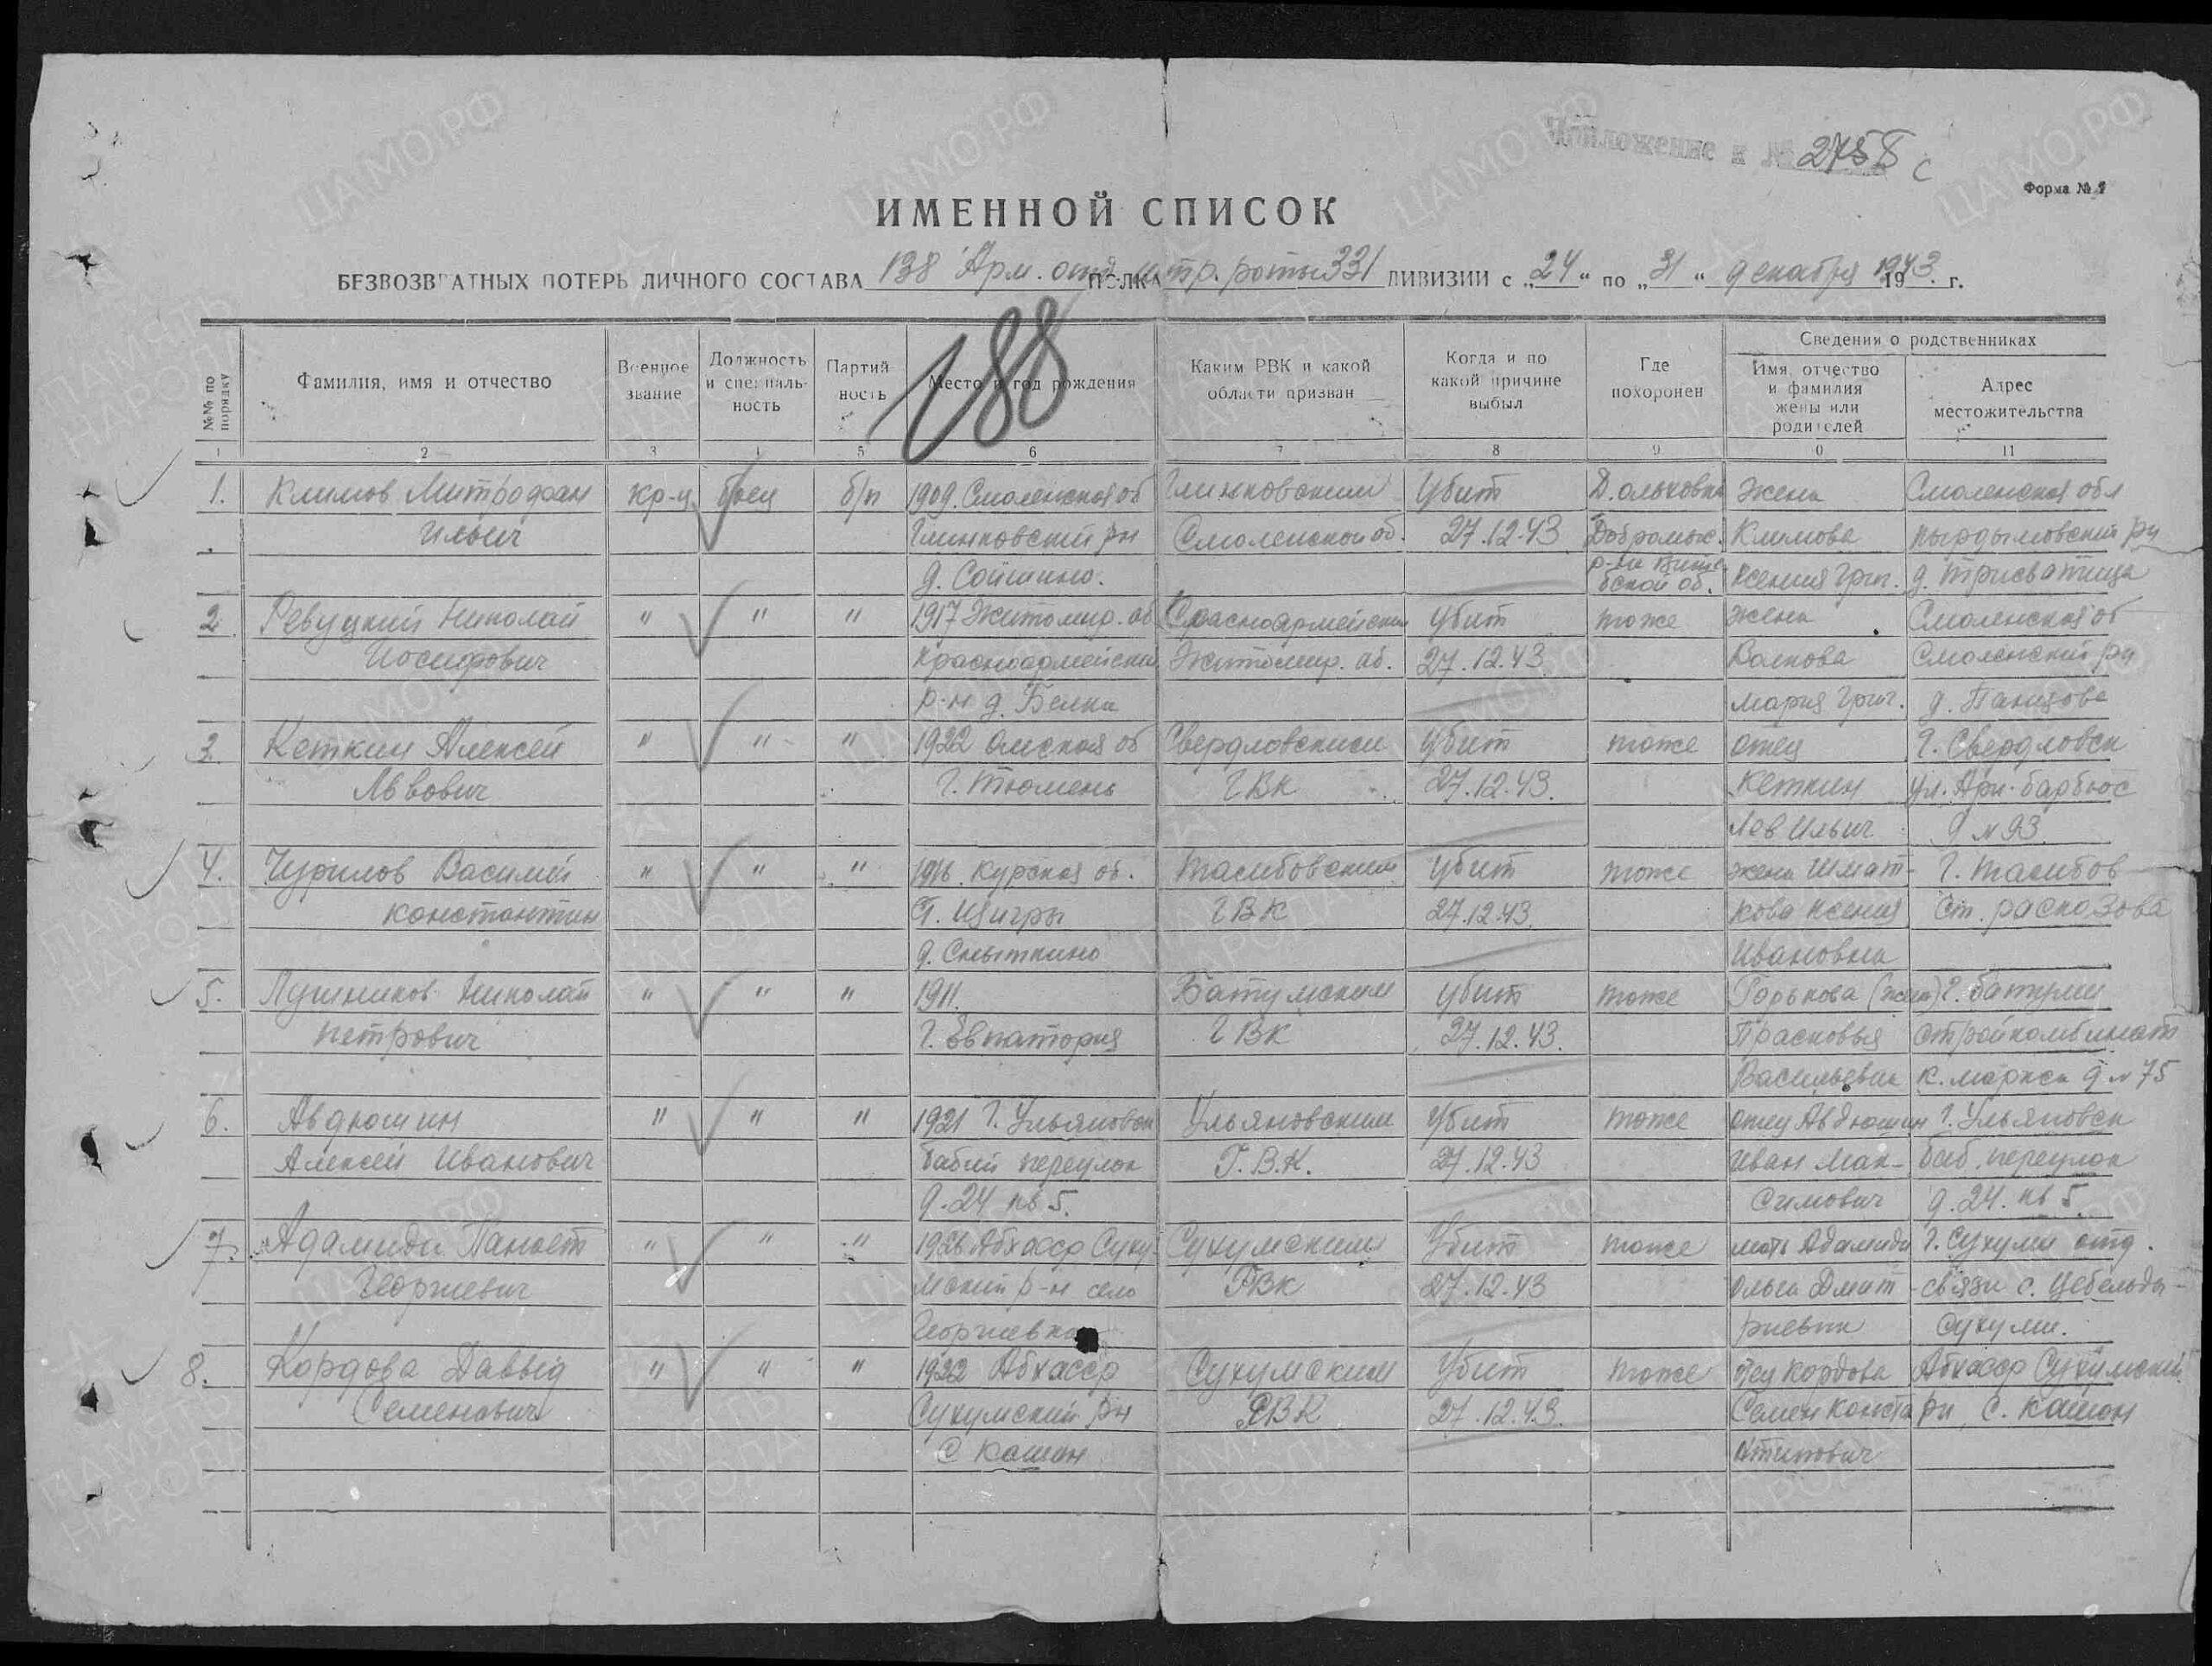 Приложение к № 2755 с
Форма № 1
ИМЕННОЙ СПИСОК
БЕЗВОЗВРАТНЫХ ПОТЕРЬ ЛИЧНОГО СОСТАВА 138 Арм. отд. штр. роты ПОЛКА 331 ДИВИЗИИ с „24“ по „31“ декабря 1943 г.
188
№№ по порядку
Фамилия, имя и отчество
Военное звание
Должность и специальность
Партийность
Место и год рождения
Каким РВК и какой области призван
Когда и по какой причине выбыл
Где похоронен
Сведения о родственниках
Имя, отчество и фамилия жены или родителей
Адрес местожительства
1 2 3 4 5 6 7 8 9 0 11
1. Климов Митрофан кр-ц боец б/п 1909. Смоленская об Глинковским Убит Д. ольховка жена Смоленская обл
Ильич Глинковский рн Смоленской об. 27.12.43 Добромыс. Климова рн
д. р-на Витебской об. Ксения Григ. д.
2. Ревуцкий Николай " " " 1917 Житомир. об Красноармейским Убит тоже жена Смоленская об
Иосифович Красноармейский Житомир. об. 27.12.43 Волкова Смоленский рн
р-н д. Белка Мария Григ. д.
3. Кеткин Алексей " " " 1922 Омская об Свердловским Убит тоже отец г. Свердловск
Львович г. Тюмень ГВК 27.12.43. Кеткин ул. Арн. барбюс
Лев Ильич д № 93
4. Чурилов Василий " " " 1916. Курская об. Тамбовским Убит тоже жена Шмат- г. Тамбов
константин г. Щигры ГВК 27.12.43. кова Ксения ст. расказова
д. Сныткино Ивановна
5. Лушников Николай " " " 1911. Батумским убит тоже Горькова (жена) г. батуми
петрович г. Евпатория ГВК 27.12.43. Прасковья стройкомбинат
Васильевна К. маркса д № 75
6. Авдюшин " " " 1921 г. Ульяновск Ульяновским Убит тоже отец Авдюшин г. Ульяновск
Алексей Иванович бабий переулок Г.В.К. 27.12.43 Иван Мак- баб. переулок
д. 24 кв 5. симович д. 24. кв 5.
7. Адамиди Панает " " " 1926 Абхасср Суху- Сухумским Убит тоже мать Адамиди г. Сухуми отд.
Георгиевич мский р-н село ГВК 27.12.43 Ольга Дмит- связи с. Цебельды-
Георгиевка риевна Сухуми.
8. Кордова Давыд " " " 1922 Абхасср Сухумским Убит тоже отец Кордова Абхасср Сухумский
Семенович Сухумский рн РВК 27.12.43. Семен Конста рн с. Каман
с Каман нтинович